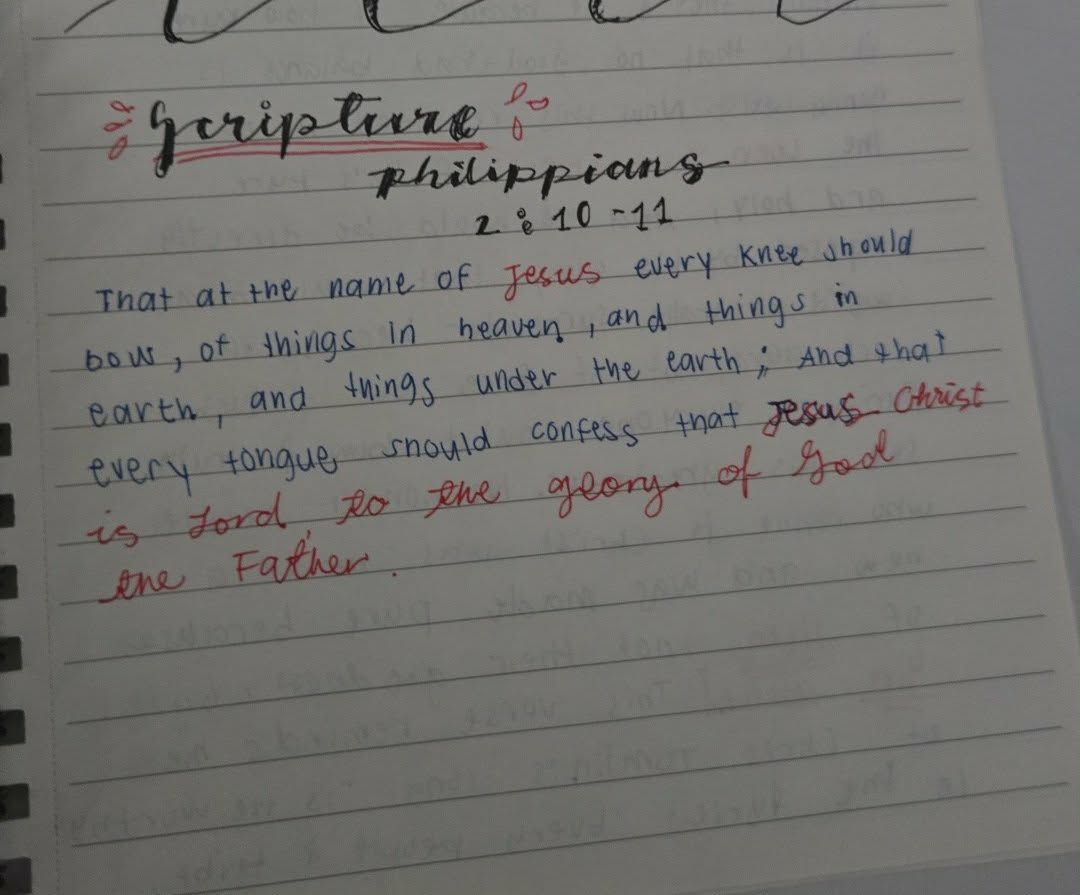 Scripture
Philippians
2:10-11
That at the name of Jesus every knee should
bow, of things in heaven, and things in
earth, and things under the earth; And that
every tongue should confess that Jesus Christ
is Lord, to the glory of God
the Father.